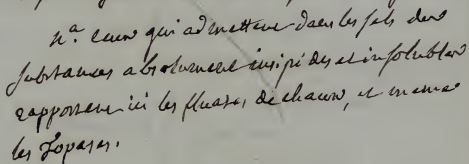 na. ceux qui admettent dans les sels des
substances absolument insipides et insolubles
rapportent ici les fluates de chaux, et meme
les topases.